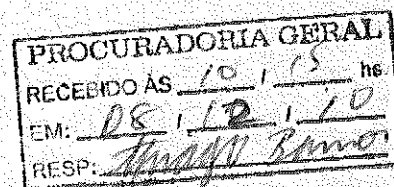 PROCURADORIA GERAL
RECEBIDO ÀS 10 / 15 hs
EM: 08 / 12 / 10
RESP: Thiago Ramos